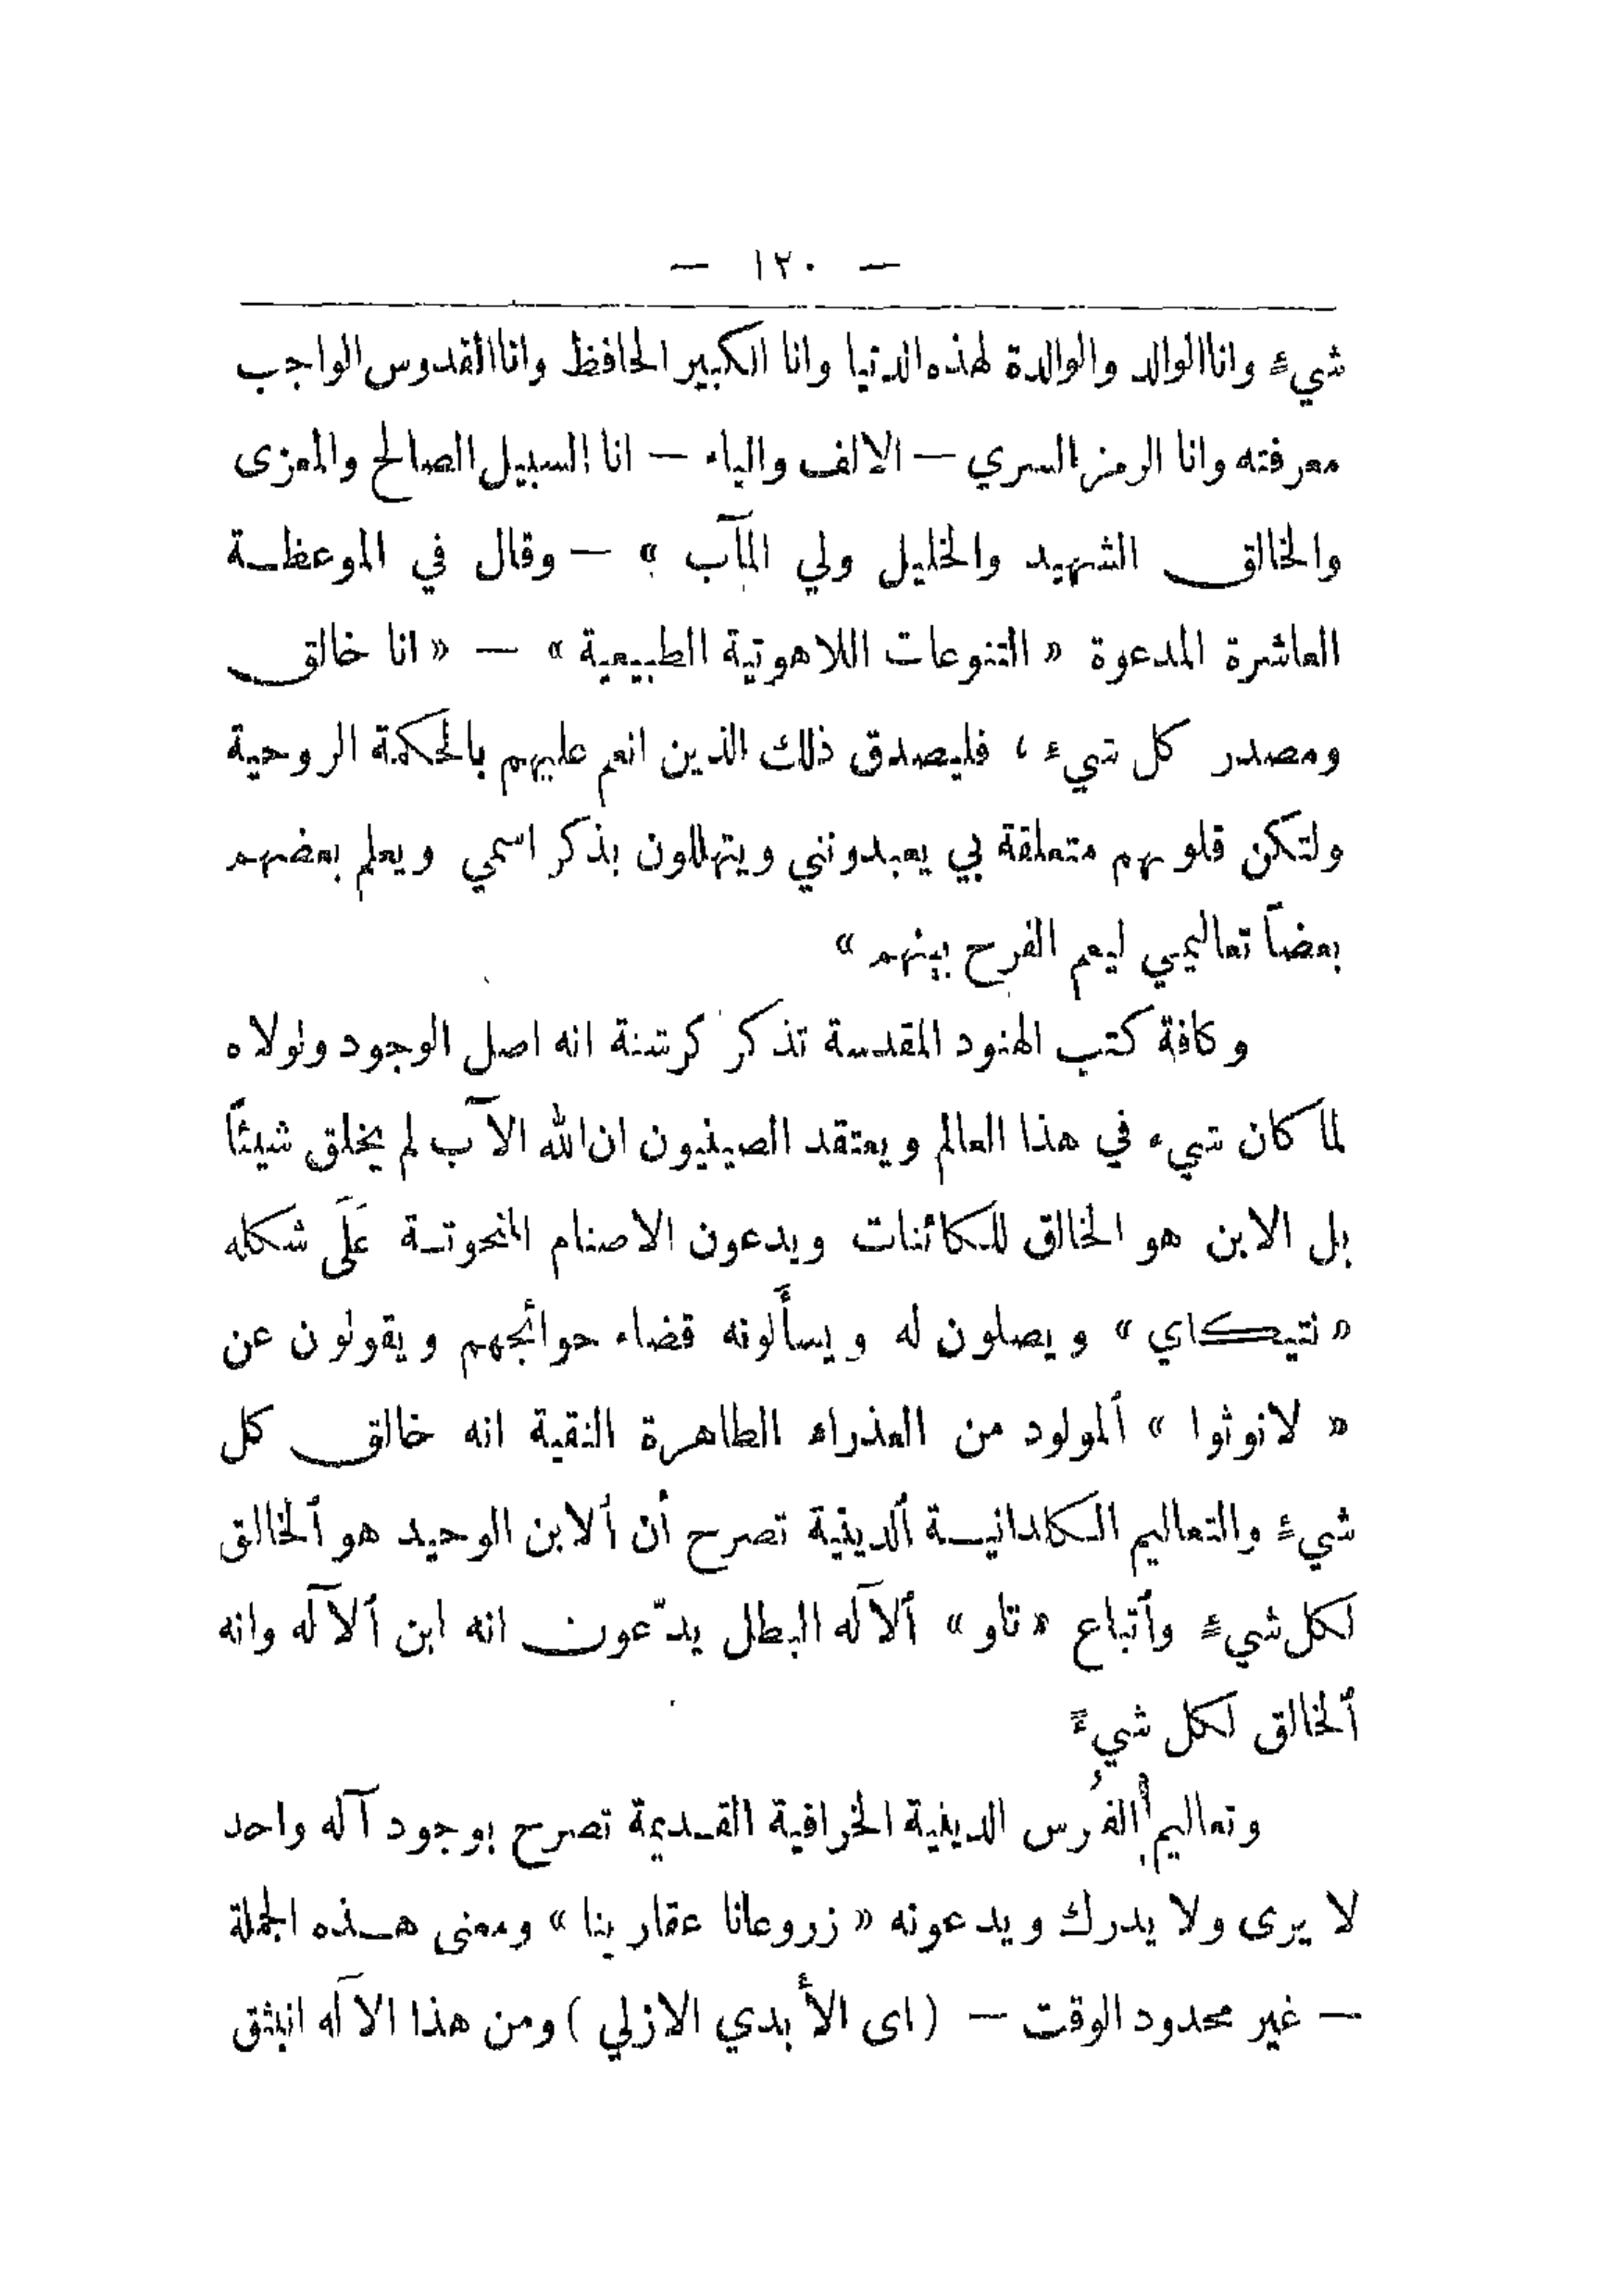 — ١٢٠ —
شيءٍ وانا الوالد والوالدة لهذه الدنيا وانا الكبير الحافظ وانا القدوس الواجب
معرفته وانا الرمز السري — الالف والياء — انا السبيل الصالح والمعزى
والخالق الشهيد والخليل ولي المآب » — وقال في الموعظة
العاشرة المدعوة « التنوعات اللاهوتية الطبيعية » — « انا خالق
ومصدر كل شيء ، فليصدق ذلك الذين انعم عليهم بالحكمة الروحية
ولتكن قلوبهم متعلقة بي يعبدونني ويتهللون بذكر اسمي ويعلم بعضهم
بعضاً تعاليمي ليعم الفرح بينهم »
وكافة كتب الهنود المقدسة تذكر كرشنة انه اصل الوجود ولولاه
لما كان شيء في هذا العالم ويعتقد الصينيون ان الله الآب لم يخلق شيئاً
بل الابن هو الخالق للكائنات ويدعون الاصنام المنحوتة عَلَى شكله
« نتيكاي » ويصلون له ويسألونه قضاء حوائجهم ويقولون عن
« لانوثوا » ألمولود من العذراء الطاهرة النقية انه خالق كل
شيءٍ والتعاليم الكلدانية ألدينية تصرح أن ألابن الوحيد هو ألخالق
لكل شيءٍ وأتباع « تاو » ألآله البطل يدّعون انه ابن ألآله وانه
ألخالق لكل شيءٍ
وتعاليم ألفُرس الدينية الخرافية القديمة تصرح بوجود آله واحد
لا يرى ولا يدرك ويدعونه « زروعانا عقاربنا » ومعنى هذه الجملة
— غير محدود الوقت — ( اى الأبدي الازلي ) ومن هذا الآله انبثق